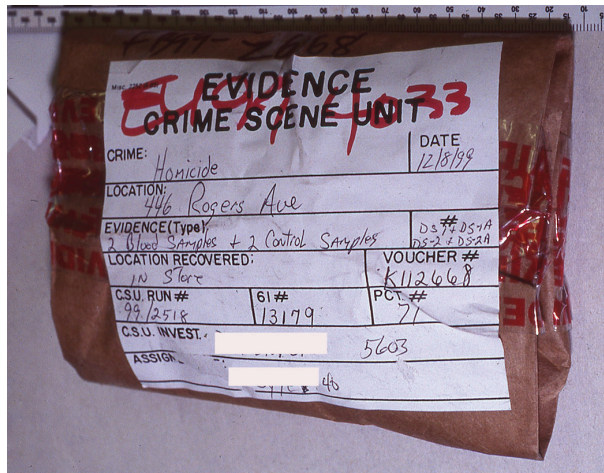 2668
EVIDENCE
CRIME SCENE UNIT
33
CRIME: Homicide
DATE 12/8/99
LOCATION: 446 Rogers Ave
EVIDENCE(Type): 2 Blood Samples + 2 Control Samples
# DS-1 + DS-1A
DS-2 + DS-2A
LOCATION RECOVERED: in Store
VOUCHER # K112668
C.S.U. RUN # 99/2518
61# 13179
PCT. # 71
C.S.U. INVEST. 5603